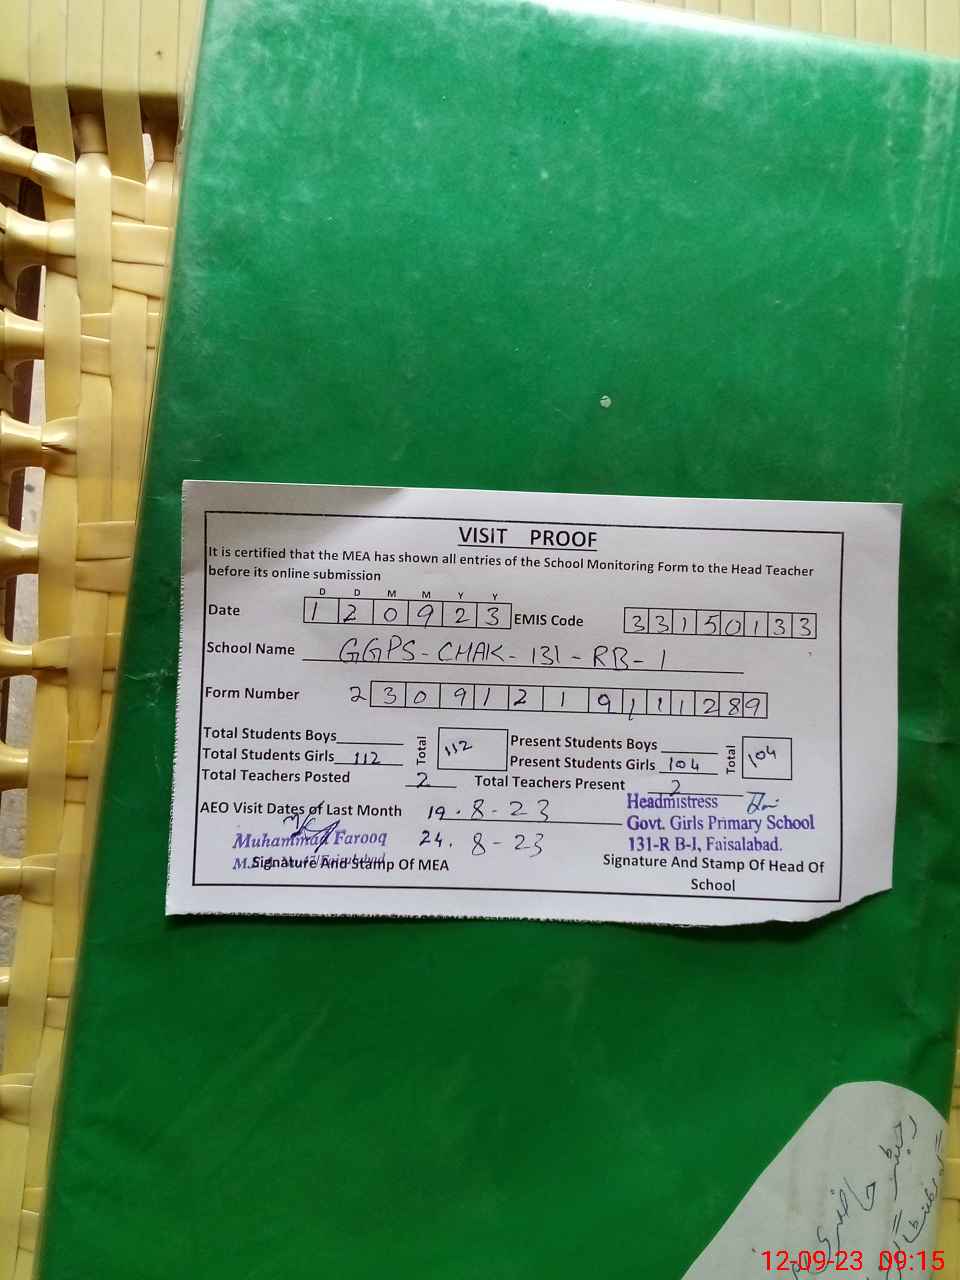 VISIT PROOF
It is certified that the MEA has shown all entries of the School Monitoring Form to the Head Teacher
before its online submission
D D M M Y Y
Date 1 2 0 9 2 3 EMIS Code 3 3 1 5 0 1 3 3
School Name GGPS-CHAK-131-RB-1
Form Number 2 3 0 9 1 2 1 9 1 1 1 2 8 9
Total Students Boys Total 112 Present Students Boys Total 104
Total Students Girls 112 Present Students Girls 104
Total Teachers Posted 2 Total Teachers Present 2
AEO Visit Dates of Last Month 19.8-23
24.8-23
Headmistress
Govt. Girls Primary School
131-R B-I, Faisalabad.
Muhammad Farooq
Signature And Stamp Of MEA
Signature And Stamp Of Head Of
School
رجسٹر حاضری
12-09-23 09:15